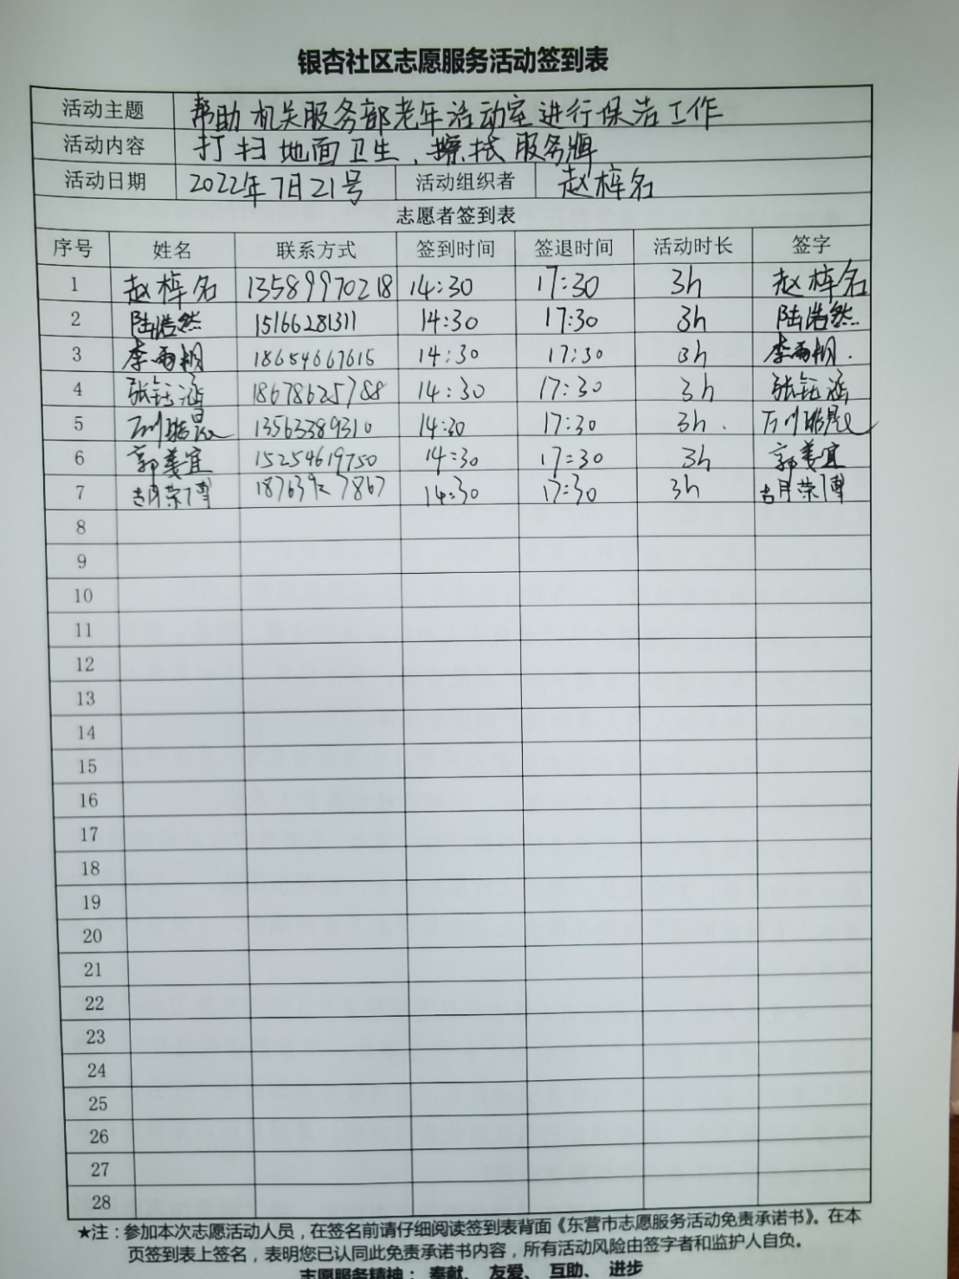 银杏社区志愿服务活动签到表
活动主题 帮助机关服务部老年活动室进行保洁工作
活动内容 打扫地面卫生、擦拭服务牌
活动日期 2022年7月21号 活动组织者 赵梓名
志愿者签到表
序号 姓名 联系方式 签到时间 签退时间 活动时长 签字
1 赵梓名 13589970218 14:30 17:30 3h 赵梓名
2 陆浩然 15166281311 14:30 17:30 3h 陆浩然
3 李雨桐 18654667615 14:30 17:30 3h 李雨桐
4 张钰涵 18678625788 14:30 17:30 3h 张钰涵
5 13563389310 14:30 17:30 3h
6 郭姜宜 15254619750 14:30 17:30 3h 郭姜宜
7 14:30 17:30 3h
8
9
10
11
12
13
14
15
16
17
18
19
20
21
22
23
24
25
26
27
28
★注：参加本次志愿活动人员，在签名前请仔细阅读签到表背面《东营市志愿服务活动免责承诺书》。在本
页签到表上签名，表明您已认同此免责承诺书内容，所有活动风险由签字者和监护人自负。
志愿服务精神：奉献、友爱、互助、进步